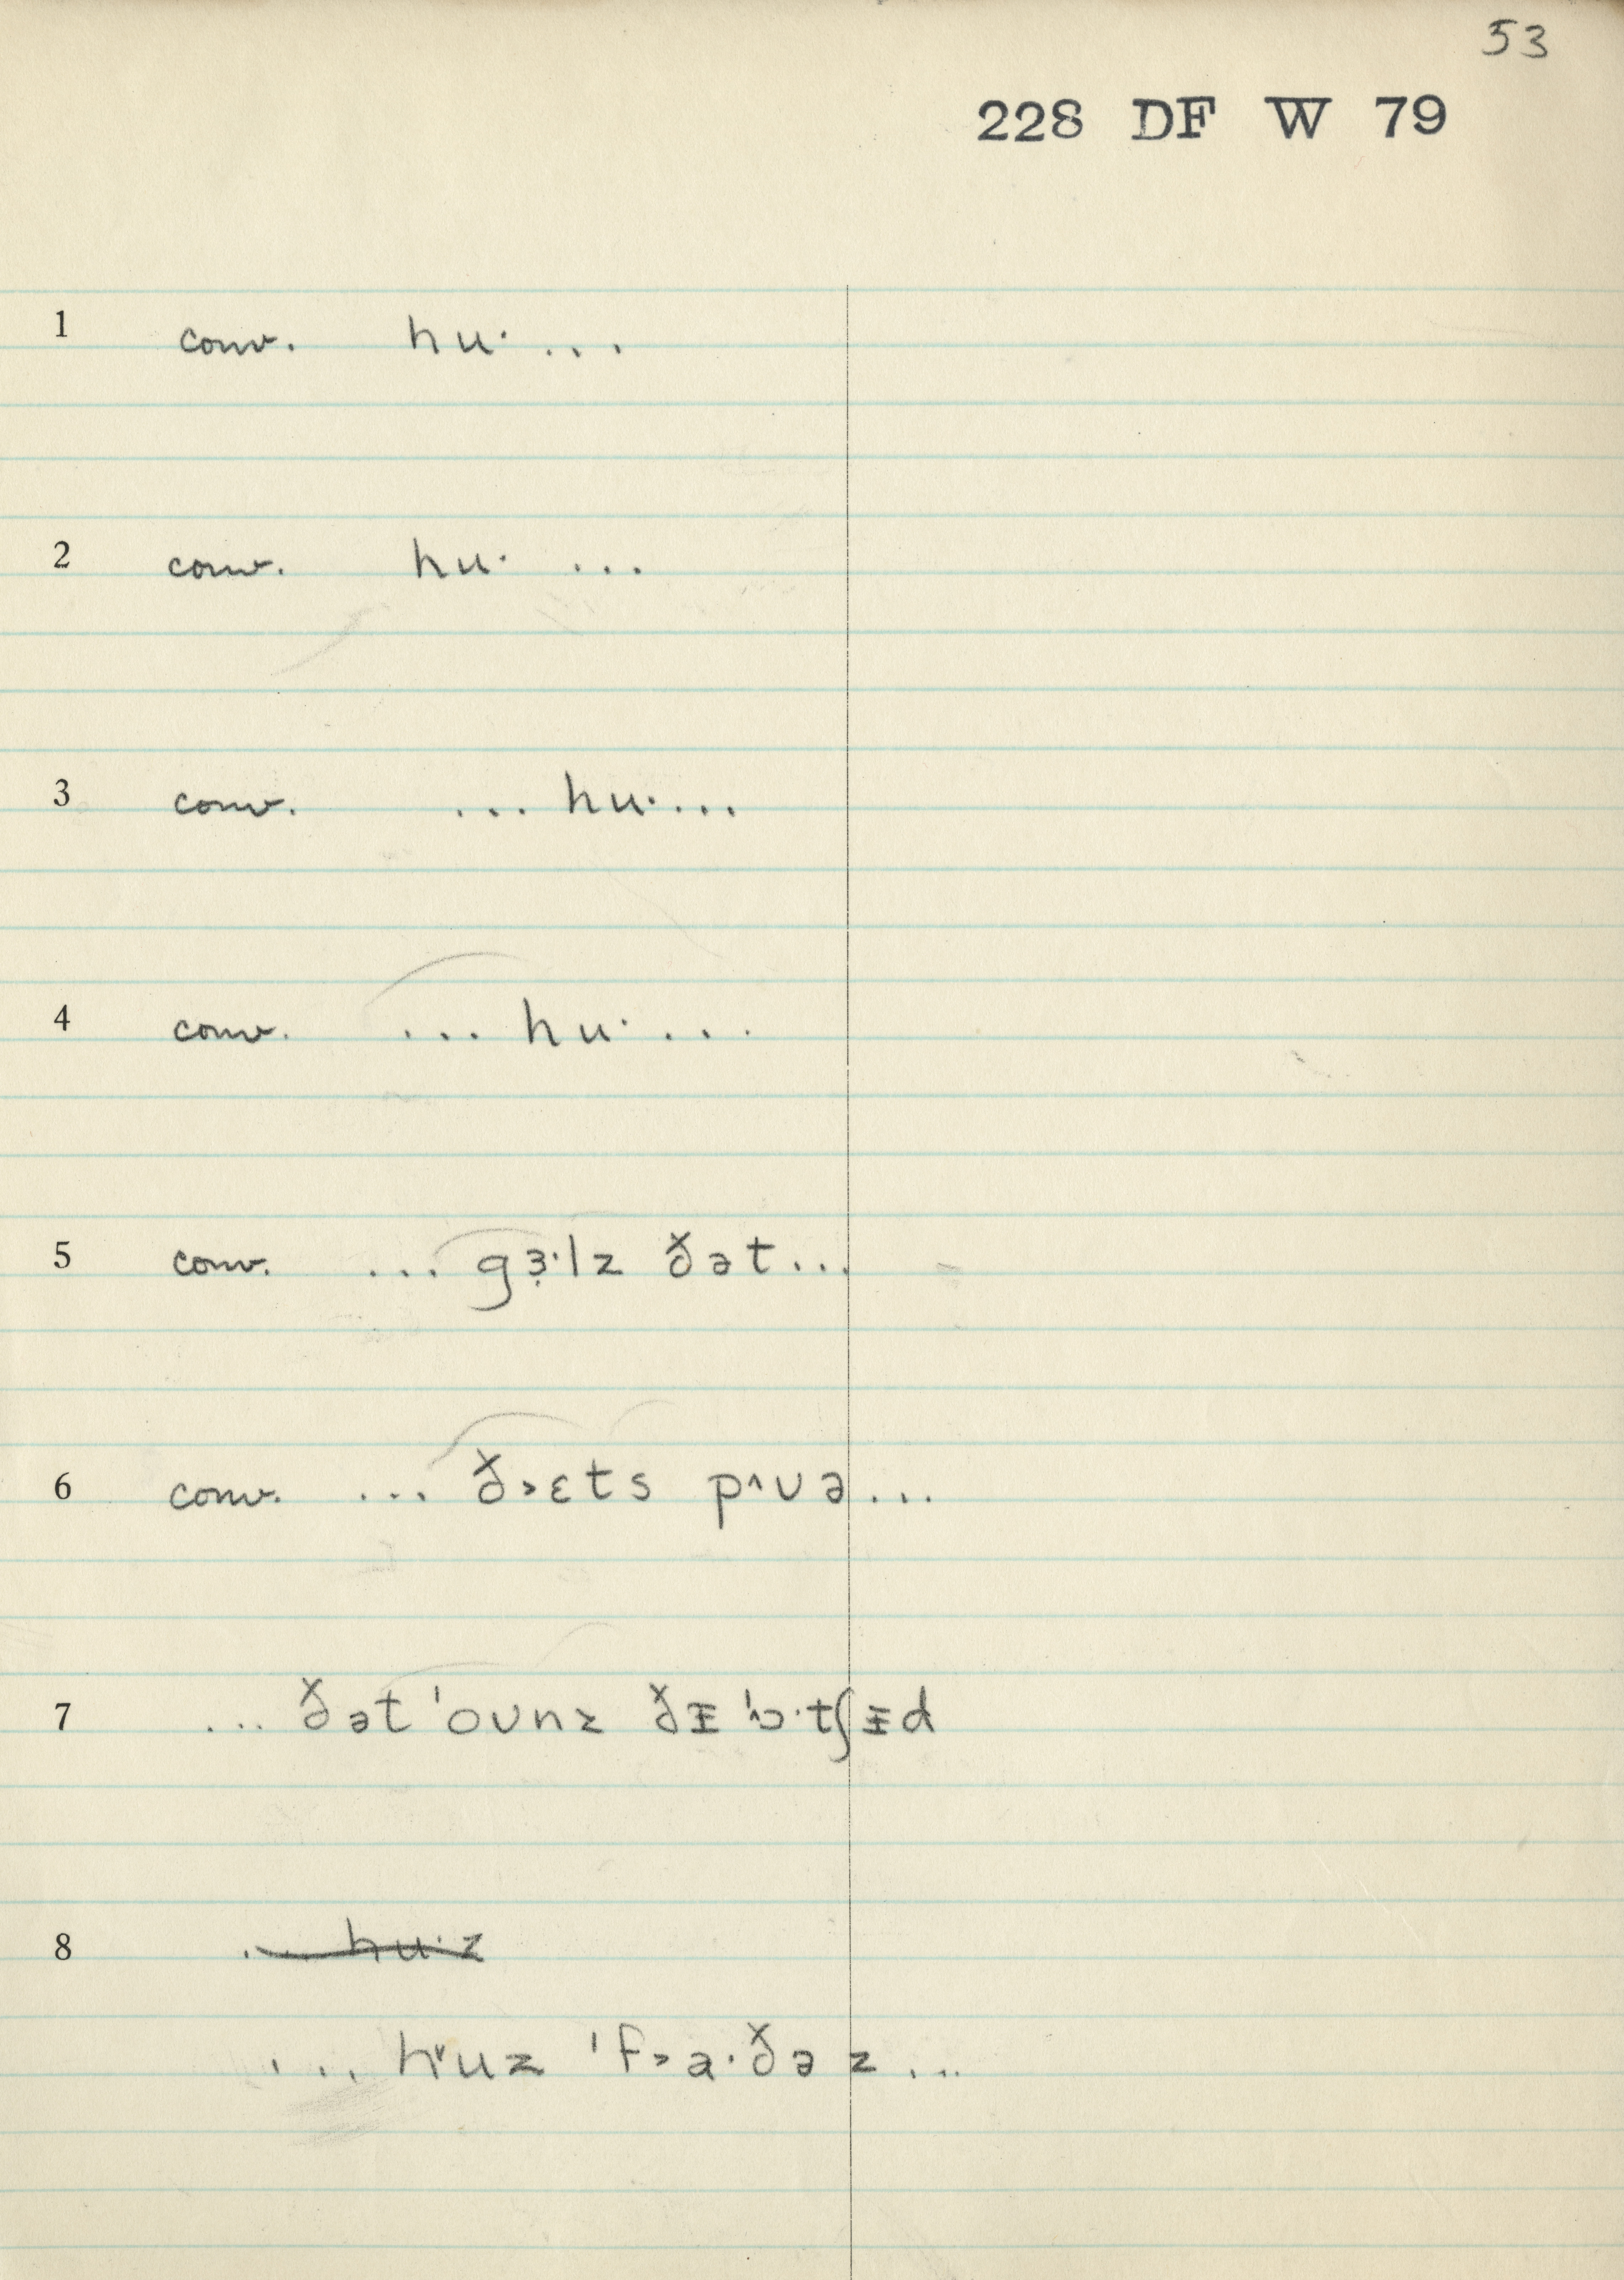 53
228 DF W 79
1 conv. hu· ...
2 conv. hu· ...
3 conv. ... hu· ...
4 conv. ... hu· ...
5 conv. ... gɜ̣·lz ðət ...
6 conv. ... ð˃ɛts p˄ʊə ...
7 ... ðət ˈoʊnz ðᵻ ˈɔ˄·tʃᵻd
8 ... hu·z
... h˅uz ˈf˃a·ðəz ...